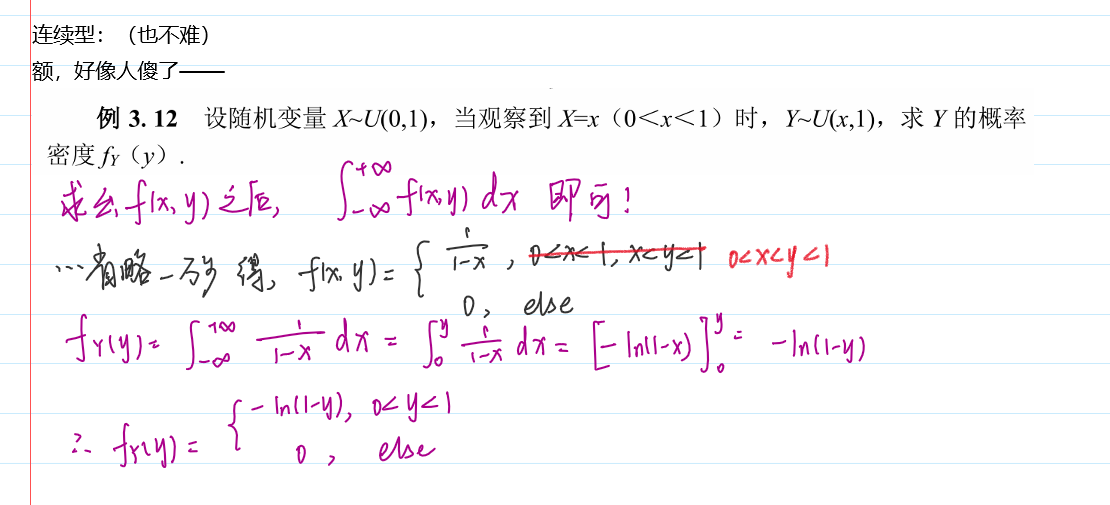 连续型：（也不难）
额，好像人傻了——
例 3.12 设随机变量 X~U(0,1)，当观察到 X=x（0＜x＜1）时，Y~U(x,1)，求 Y 的概率
密度 f_Y（y）.
求出 f(x,y) 之后， ∫_{-∞}^{+∞} f(x,y) dx 即可！
…省略一万步 得，f(x,y) = { 1/(1-x) , 0<x<1, x<y<1 0<x<y<1
0, else
f_Y(y) = ∫_{-∞}^{+∞} 1/(1-x) dx = ∫_0^y 1/(1-x) dx = [-ln(1-x)]_0^y = -ln(1-y)
∴ f_Y(y) = { -ln(1-y), 0<y<1
0, else